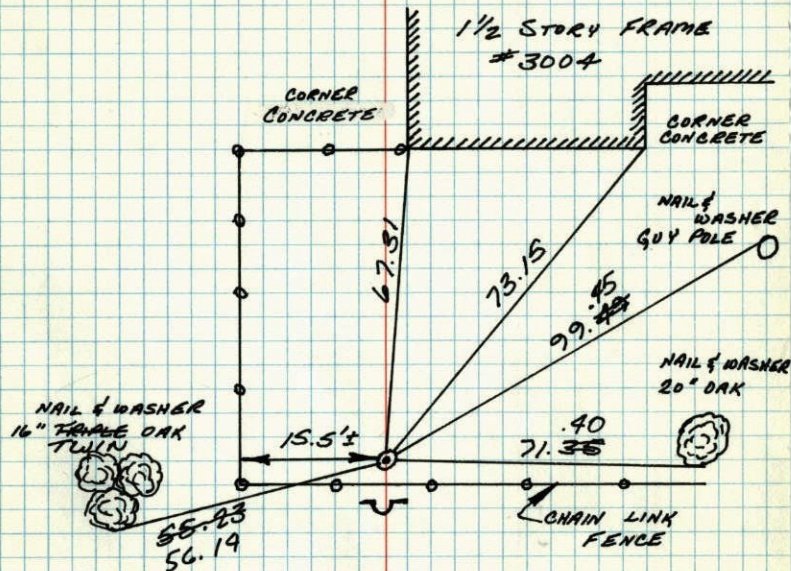 1½ STORY FRAME
#3004
CORNER
CONCRETE
CORNER
CONCRETE
NAIL &
WASHER
GUY POLE
67.31
73.15
.45
99.42
NAIL & WASHER
20" OAK
NAIL & WASHER
16" TRIPLE OAK
TWIN
15.5'±
.40
71.35
55.23
56.14
CHAIN LINK
FENCE